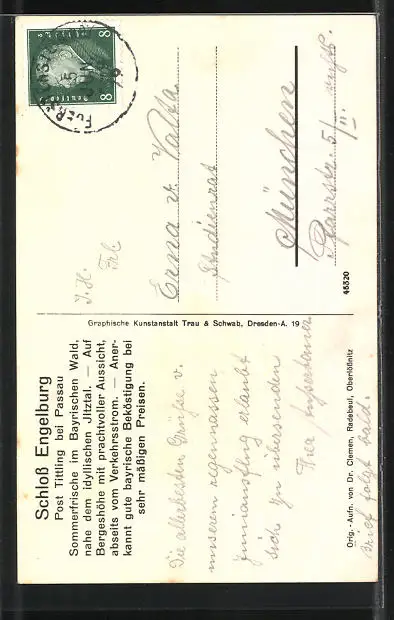 Schloß Engelburg
Post Tittling bei Passau
Sommerfrische im Bayrischen Wald,
nahe dem idyllischen Jltztal. — Auf
Bergeshöhe mit prachtvoller Aussicht,
abseits vom Verkehrsstrom. — Aner-
kannt gute bayrische Beköstigung bei
sehr mäßigen Preisen.
Die allerbesten Grüße v.
unserem
erlaubt
sich zu übersenden
Ihre
Brief folgt bald.
Orig.-Aufn. von Dr. Clemen, Radebeul, Oberlößnitz
Graphische Kunstanstalt Trau & Schwab, Dresden-A. 19
8 8
Deutsches
I. H.
Frl.
Erna v.
Studienrat
München
Pfarrstr. 5/II.
46320